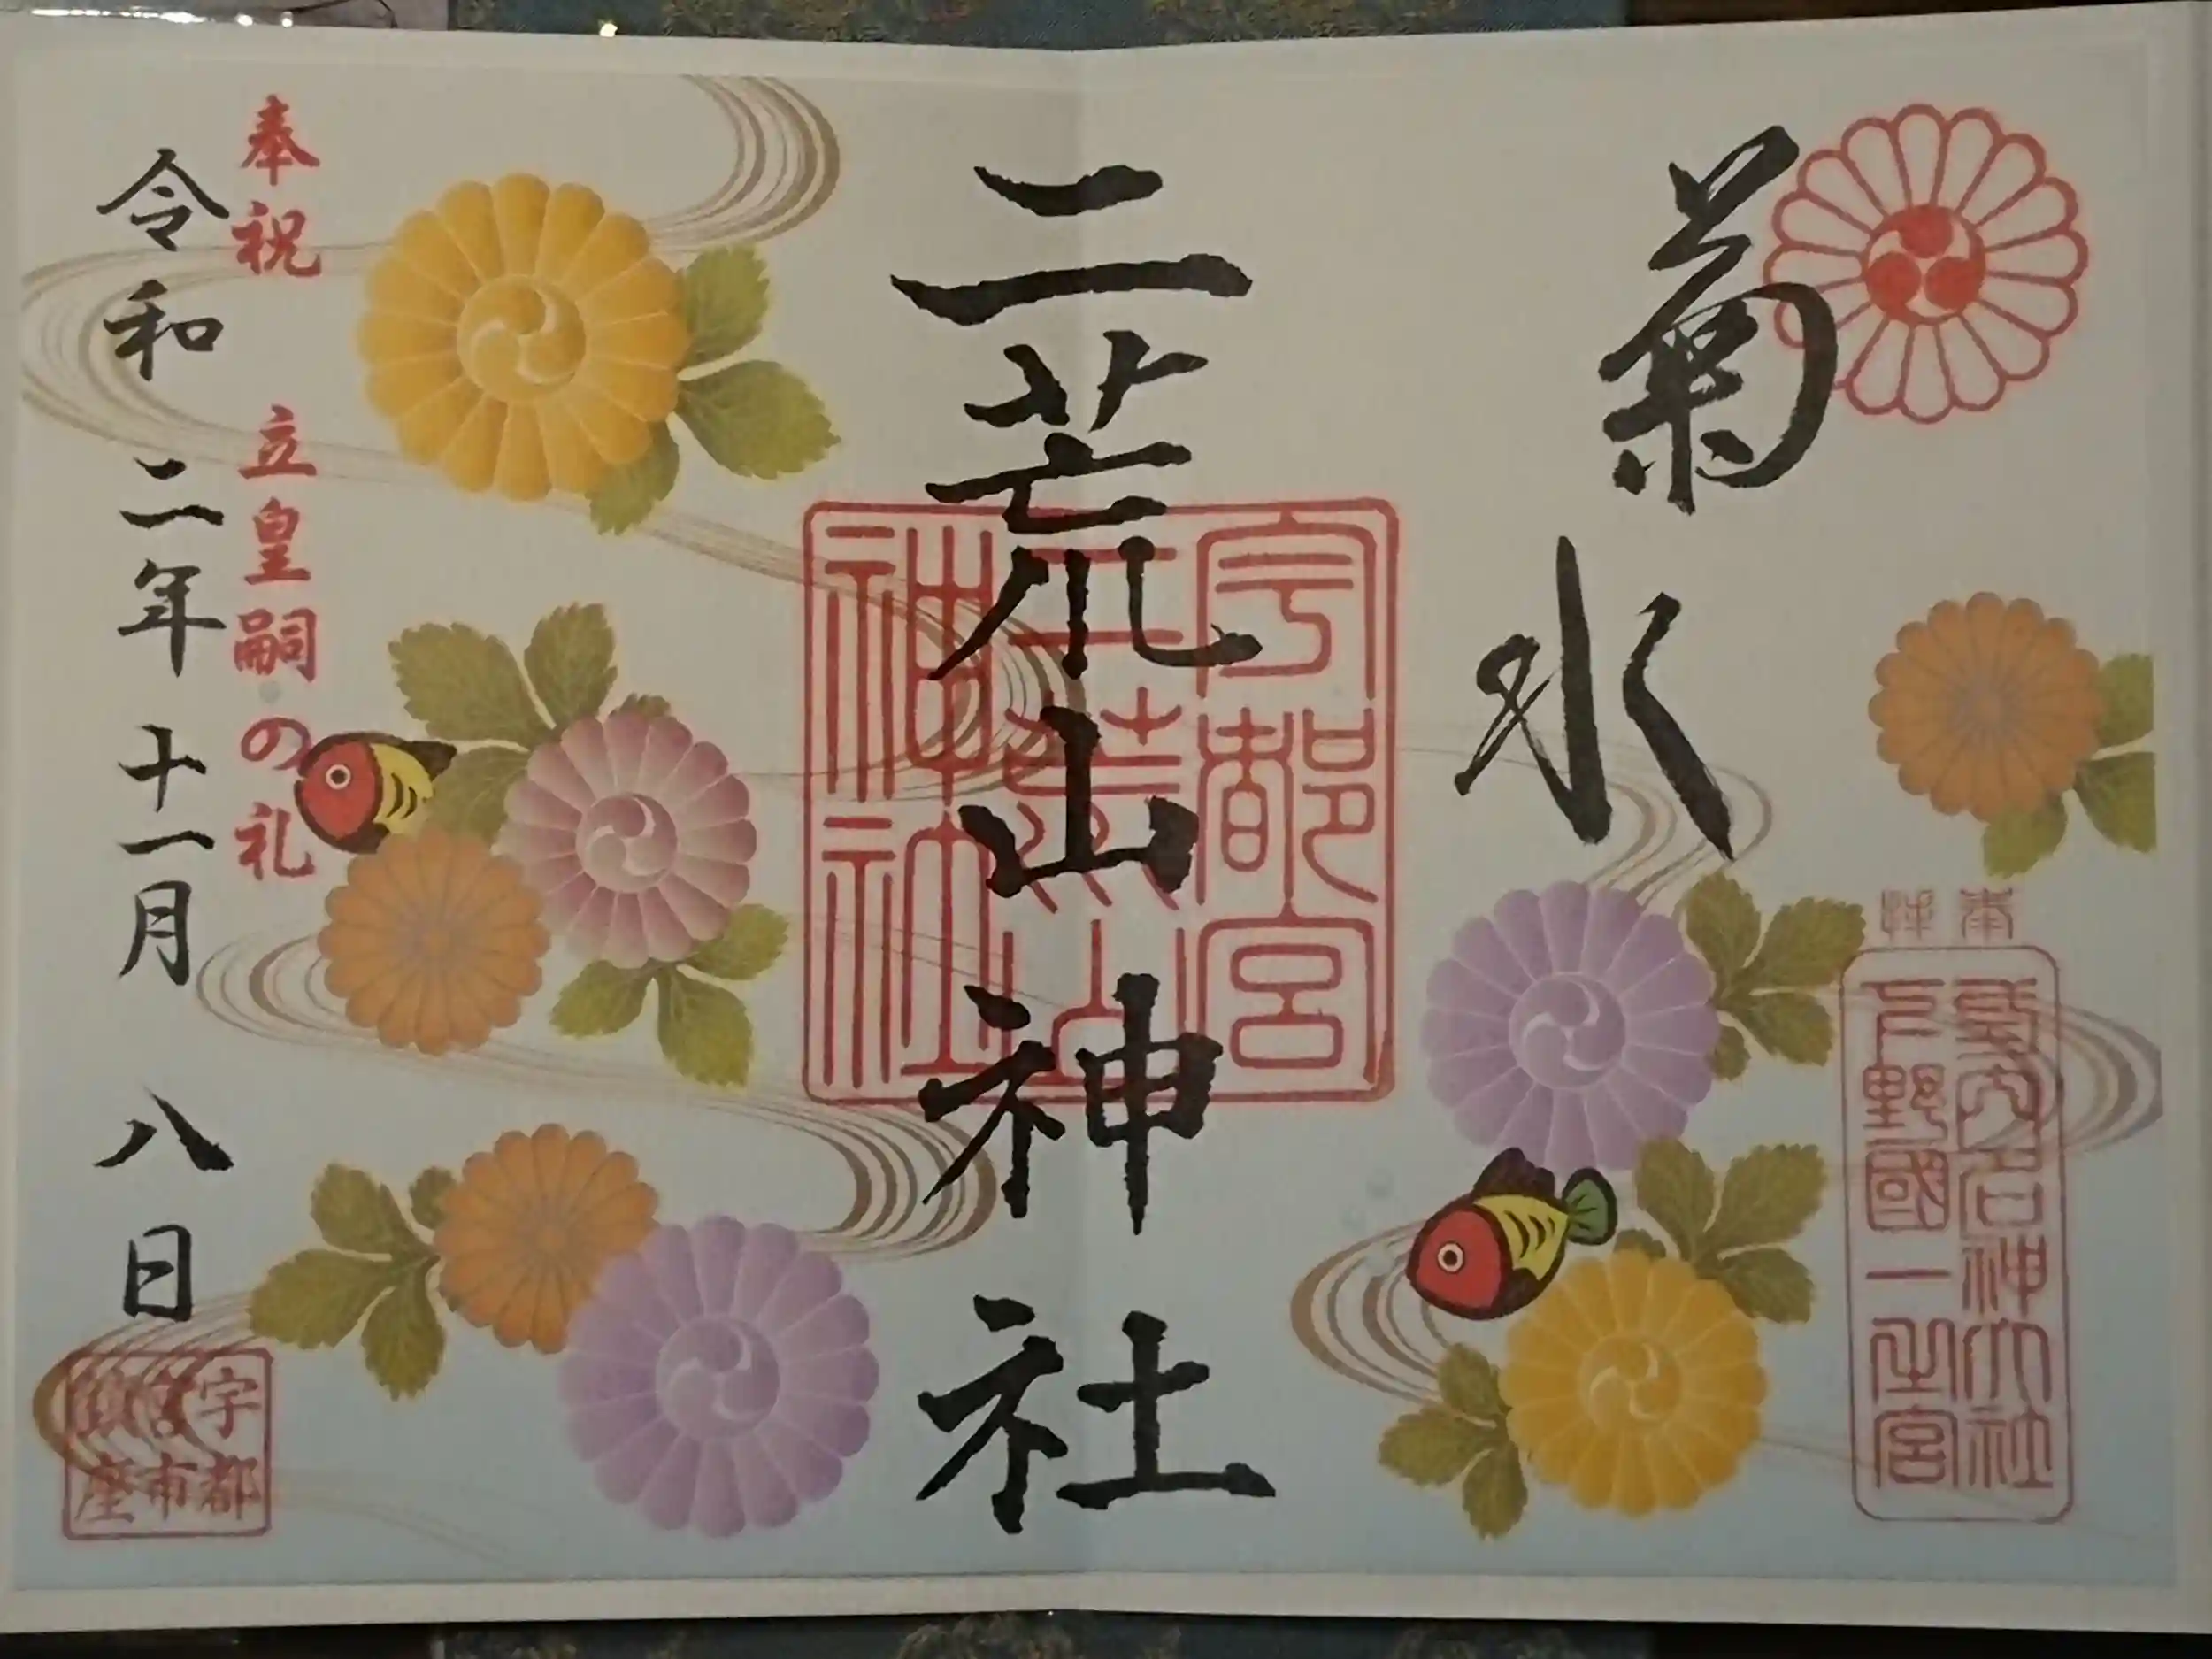 菊水
奉拝
延喜式内名神大社
下野國一之宮
二荒山神社
宇都宮
二荒山
神社
奉祝 立皇嗣の礼
令和二年十一月八日
宇都
宮市
鎮座